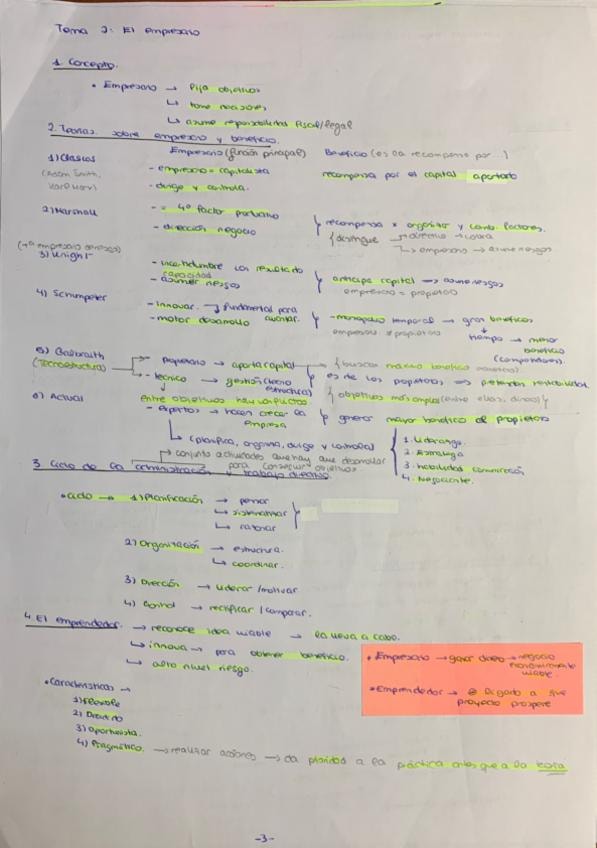 Tema 2: El empresario
1. Concepto.
• Empresario → fija objetivos
↳ toma decisiones
↳ asume responsabilidad fiscal/legal
2. Teorías sobre empresario y beneficio.
Empresario (función principal) Beneficio (es la recompensa por...)
1) Clásicos - empresario = capitalista recompensa por el capital aportado
(Adam Smith, Karl Marx) - dirige y controla.
2) Marshall - = 4º factor productivo
- dirección negocio } recompensa x organizar y comb. factores.
{ distingue → directivo → cobra
↳ empresario → asume riesgos
3) Knight - incertidumbre con resultado
capacidad
- asumir riesgos } anticipa capital → asume riesgos
empresario = propietario
4) Schumpeter - innovar. → fundamental para
- motor desarrollo aumentar. } - monopolio temporal → gran beneficios
empresario ≠ propietario tiempo → menor
beneficio
(competidores).
5) Galbraith → propietario → aporta capital { buscan máximo beneficio
(Tecnoestructura) → técnico → gestión (tecno } es de los propietarios ⇒ pretenden rentabilidad.
estructura) { objetivos más amplios (entre ellos, dinero) }
entre objetivos hay conflictos
6) Actual - experto → hacen crecer la } generar mayor beneficio al propietario
empresa
↳ (planifica, organiza, dirige y controla)
↳ conjunto actividades que hay que desarrollar
para conseguir objetivos
1. Liderazgo.
2. Estratega
3. habilidades comunicación
4. Negociante.
3. Ciclo de la administración y trabajo directivo.
• ciclo → 1) Planificación → pensar
↳ sistematizar
↳ razonar
2) Organización → estructura.
↳ coordinar.
3) Dirección → liderar/motivar
4) Control → rectificar/comparar.
4. El emprendedor. → reconoce idea viable → la lleva a cabo.
↳ innova → para obtener beneficio.
↳ alto nivel riesgo.
• Empresario → ganar dinero → negocio
económicamente
viable.
• Emprendedor → ligado a que
proyecto prospere
• Características →
1) Flexible
2)
3) Oportunista.
4) Pragmático. → realizar acciones → da prioridad a la práctica antes que a la teoría
-3-